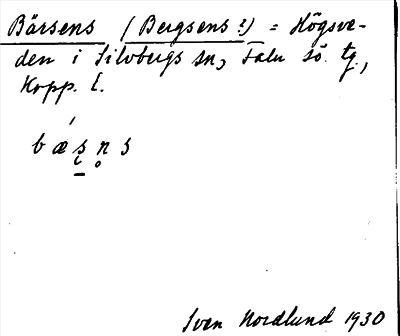 Bärsens (Bergsens?) = Högsve-
den i Silvbergs sn, Falu sö. tg.,
Kopp. l.
b ǽ s̨ n̥ s
Sven Nordlund 1930